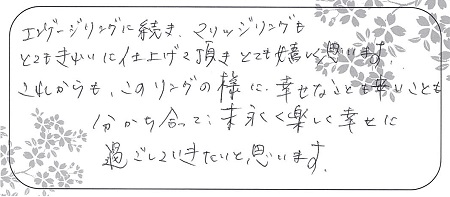 エンゲージリングに続き、マリッジリングも
とてもきれいに仕上げて頂き とても嬉しく思います。
これからも、このリングの様に、幸せなことも辛いことも
分かち合って、末永く楽しく幸せに
過ごしていきたいと思います。